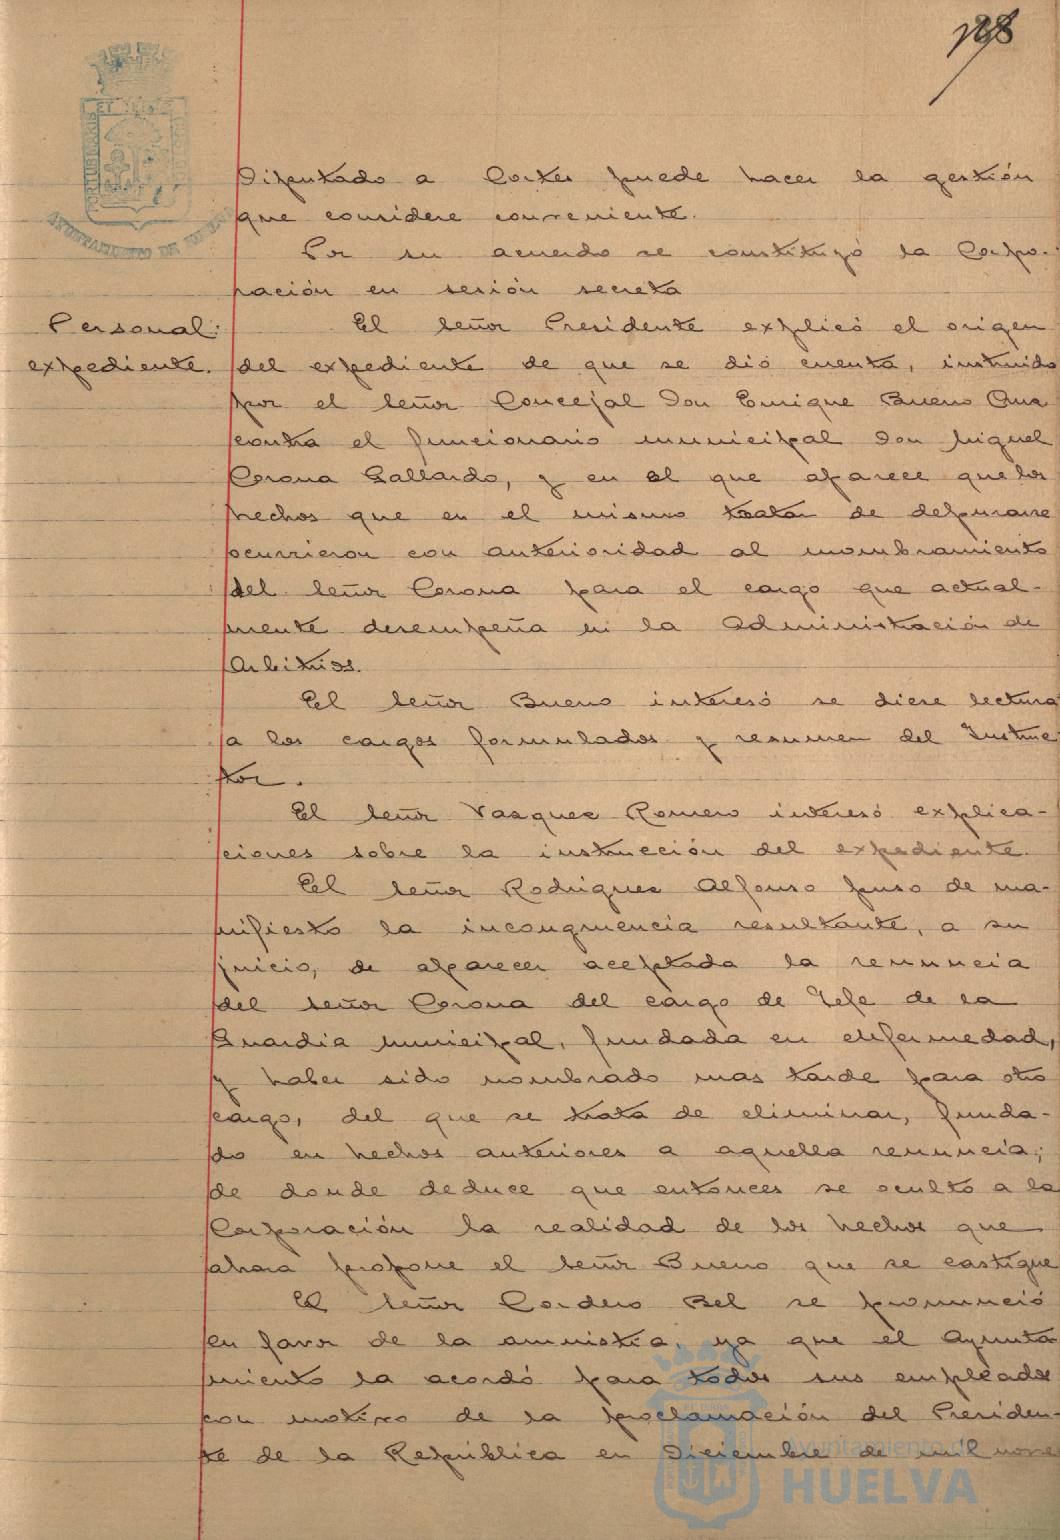 128
AYUNTAMIENTO DE HUELVA
Diputado a Cortes puede hacer la gestión
que considere conveniente.
Por su acuerdo se constituyó la Corpo-
ración en sesión secreta
Personal:
expediente.
El señor Presidente explicó el origen
del expediente de que se dió cuenta, instruido
por el señor Concejal Don Enrique Bueno Cruz
contra el funcionario municipal Don Miguel
Corona Gallardo, y en el que aparece que los
hechos que en el mismo tratan de depurarse
ocurrieron con anterioridad al nombramiento
del señor Corona para el cargo que actual-
mente desempeña en la Administración de
Arbitrios.
El señor Bueno interesó se diese lectura
a los cargos formulados y resumen del Instruc
tor.
El señor Vazquez Romero interesó explica-
ciones sobre la instrucción del expediente.
El señor Rodriguez Alfonso puso de ma-
nifiesto la incongruencia resultante, a su
juicio, de aparecer aceptada la renuncia
del señor Corona del cargo de Jefe de la
Guardia municipal, fundada en enfermedad,
y haber sido nombrado mas tarde para otro
cargo, del que se trata de eliminar, funda-
do en hechos anteriores a aquella renuncia;
de donde deduce que entonces se ocultó a la
Corporación la realidad de los hechos que
ahora propone el señor Bueno que se castigue
El señor Cordero Bel se pronunció
en favor de la amnistía, ya que el Ayunta
miento la acordó para todos sus empleados
con motivo de la proclamación del Presiden-
te de la República en Diciembre de mil nove
Ayuntamiento de
HUELVA